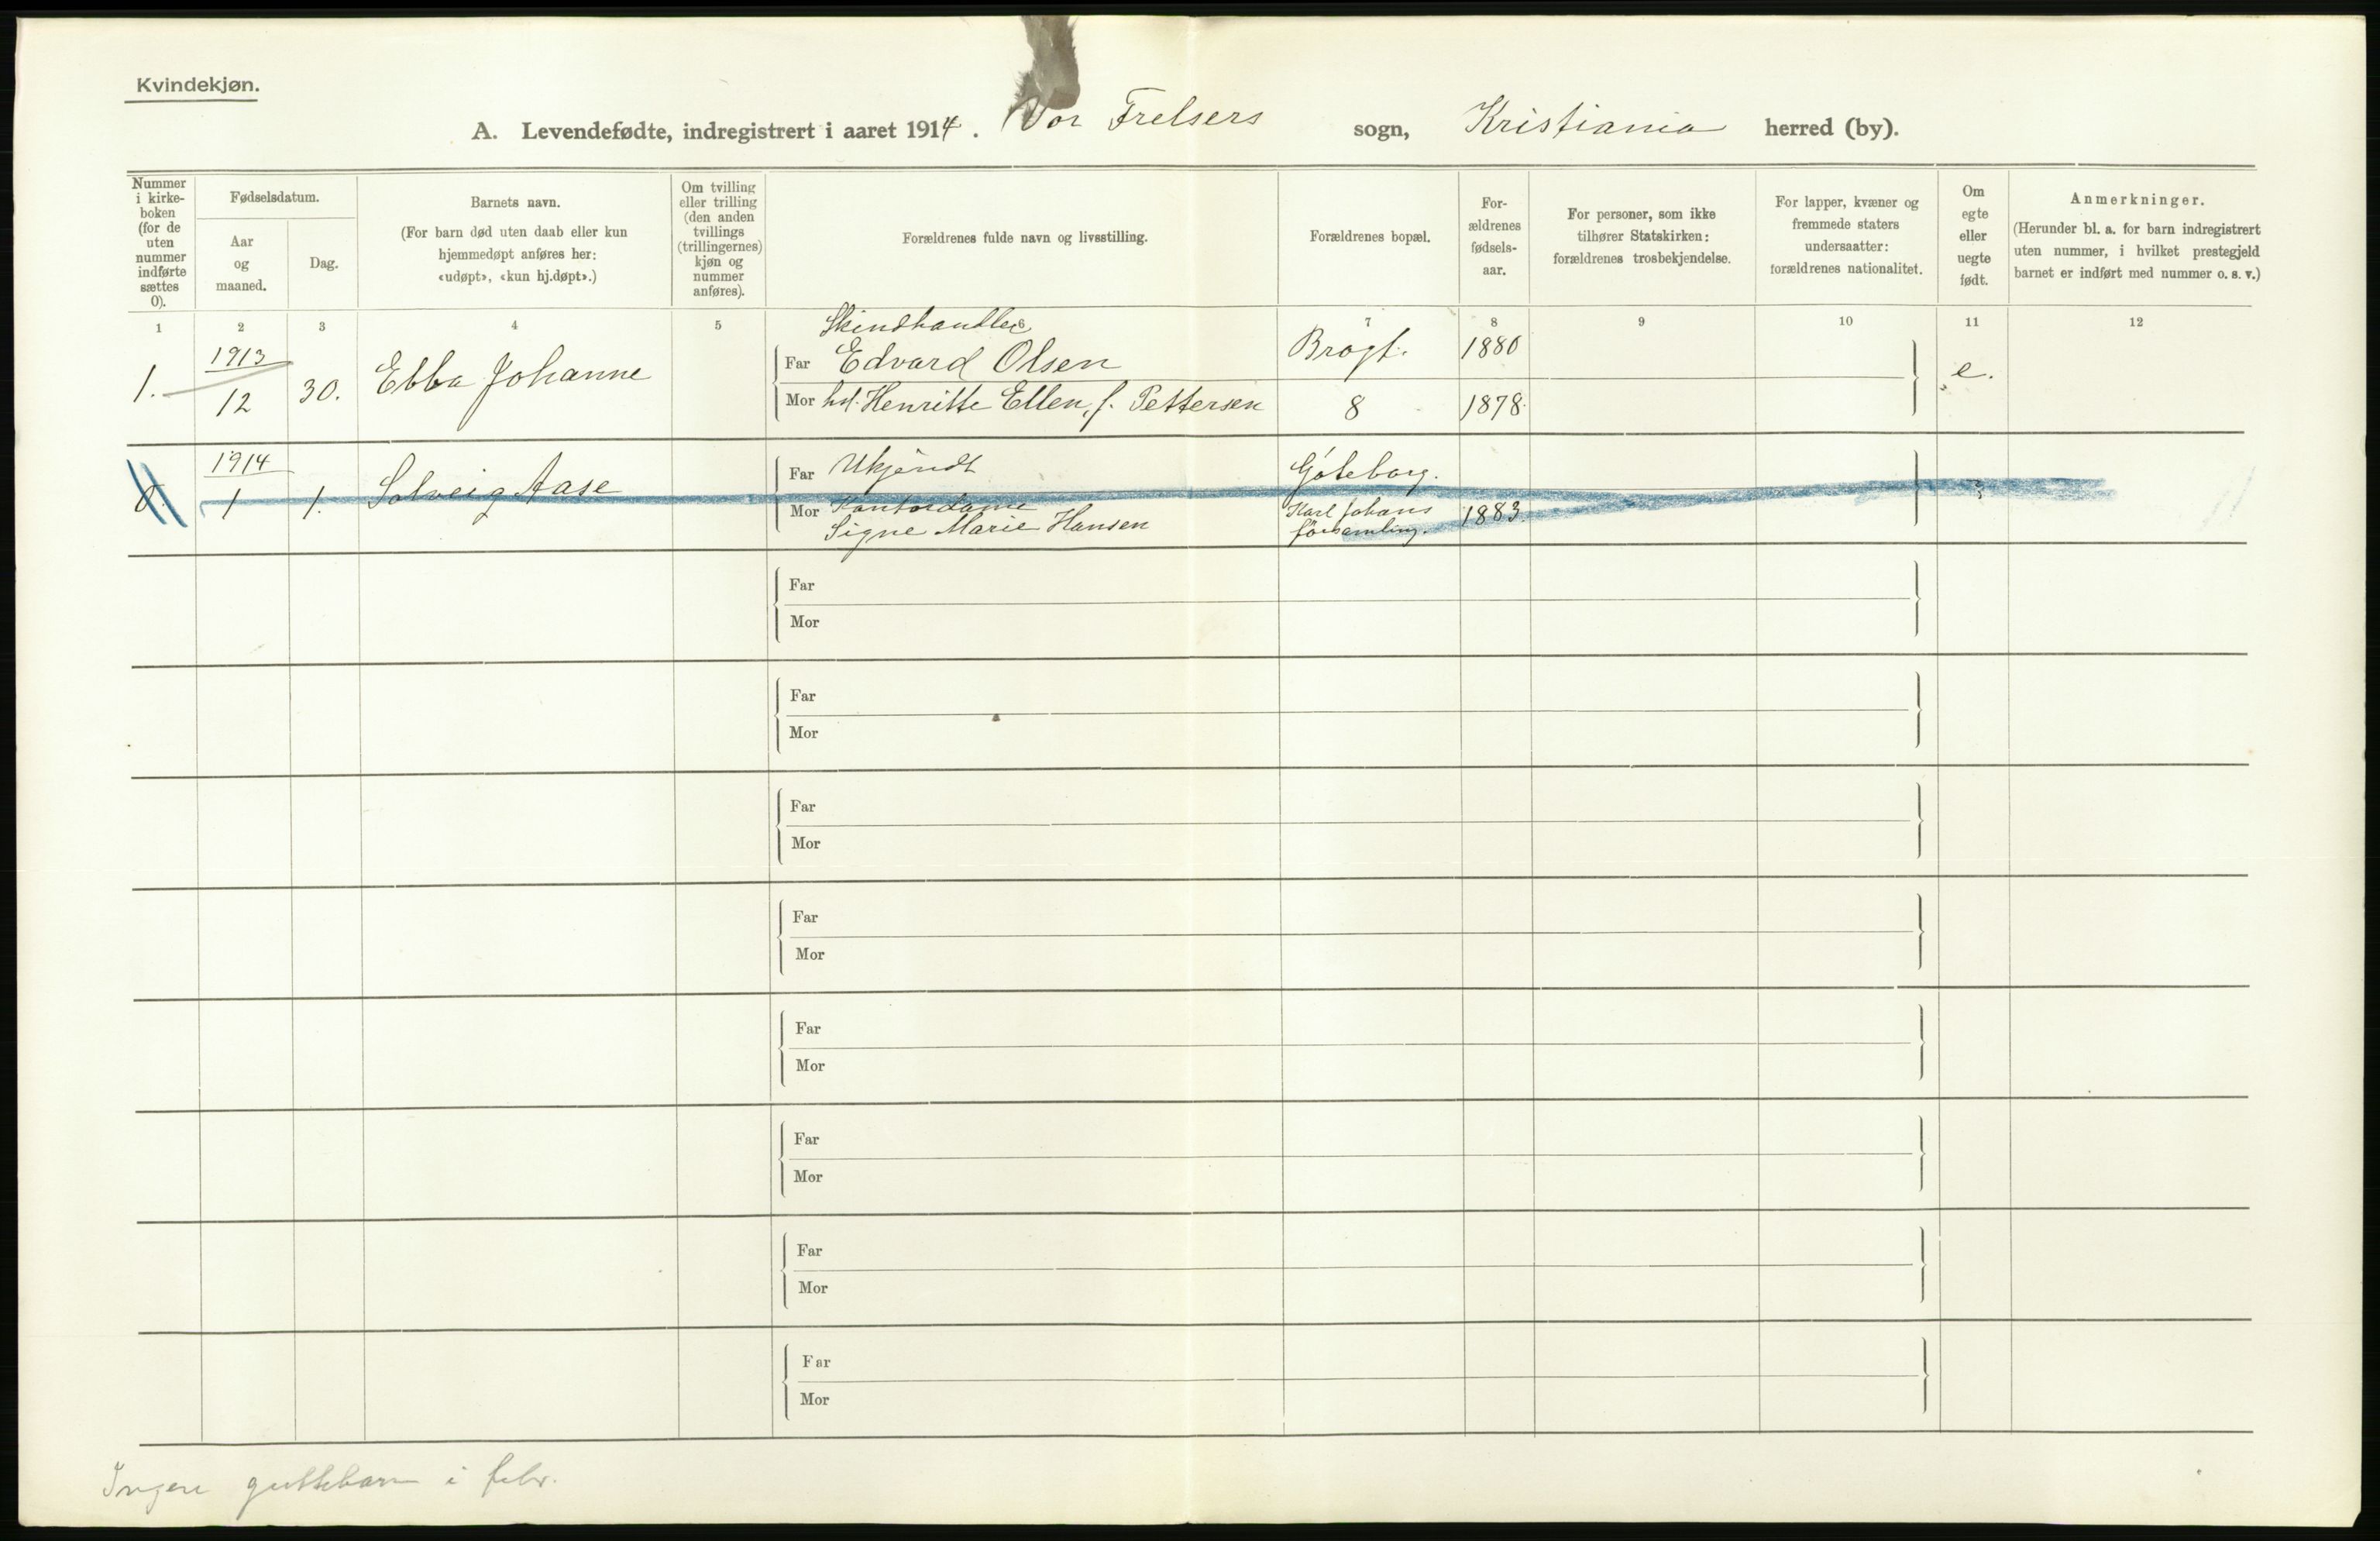 Kvindekjøn.
A. Levendefødte, indregistrert i aaret 1914. Vor Frelsers sogn, Kristiania herred (by).
Nummer i kirke-boken (for de uten nummer indførte sættes 0).
Fødselsdatum.
Aar og maaned.
Dag.
Barnets navn.
(For barn død uten daab eller kun hjemmedøpt anføres her: «udøpt», «kun hj.døpt».)
Om tvilling eller trilling (den anden tvillings (trillingernes) kjøn og nummer anføres).
Forældrenes fulde navn og livsstilling.
Forældrenes bopæl.
For-ældrenes fødsels-aar.
For personer, som ikke tilhører Statskirken: forældrenes trosbekjendelse.
For lapper, kvæner og fremmede staters undersaatter: forældrenes nationalitet.
Om egte eller uegte født.
Anmerkninger.
(Herunder bl. a. for barn indregistrert uten nummer, i hvilket prestegjeld barnet er indført med nummer o. s. v.)
1 2 3 4 5 6 7 8 9 10 11 12
Skindhandler
1. 1913 12 30. Ebba Johanne
Far Edvard Olsen Brogt. 1880
Mor Henritte Ellen, f. Pettersen 8 1878
e.
0. 1914 1 1. Solveig Aase
Far Ukjendt Göteborg.
Mor Kontordame Karl Johans 1883.
Signe Marie Hansen församling.
Far
Mor
Far
Mor
Far
Mor
Far
Mor
Far
Mor
Far
Mor
Far
Mor
Far
Mor
Ingen guttebarn i febr.